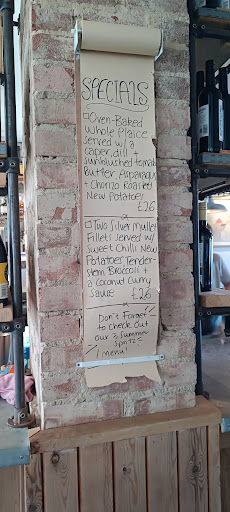 SPECIALS
Oven-Baked
Whole Plaice
served w/ a
caper, dill +
sunblushed tomato
Butter, Asparagus
+ Chorizo Roasted
New Potatoes
£26
Two Silver Mullet
Fillets served w/
Sweet Chilli New
Potatoes Tender-
stem Broccoli +
a Coconut Curry
Sauce £26
Don't Forget
to check out
our 3 Summer
Spritz
menu!